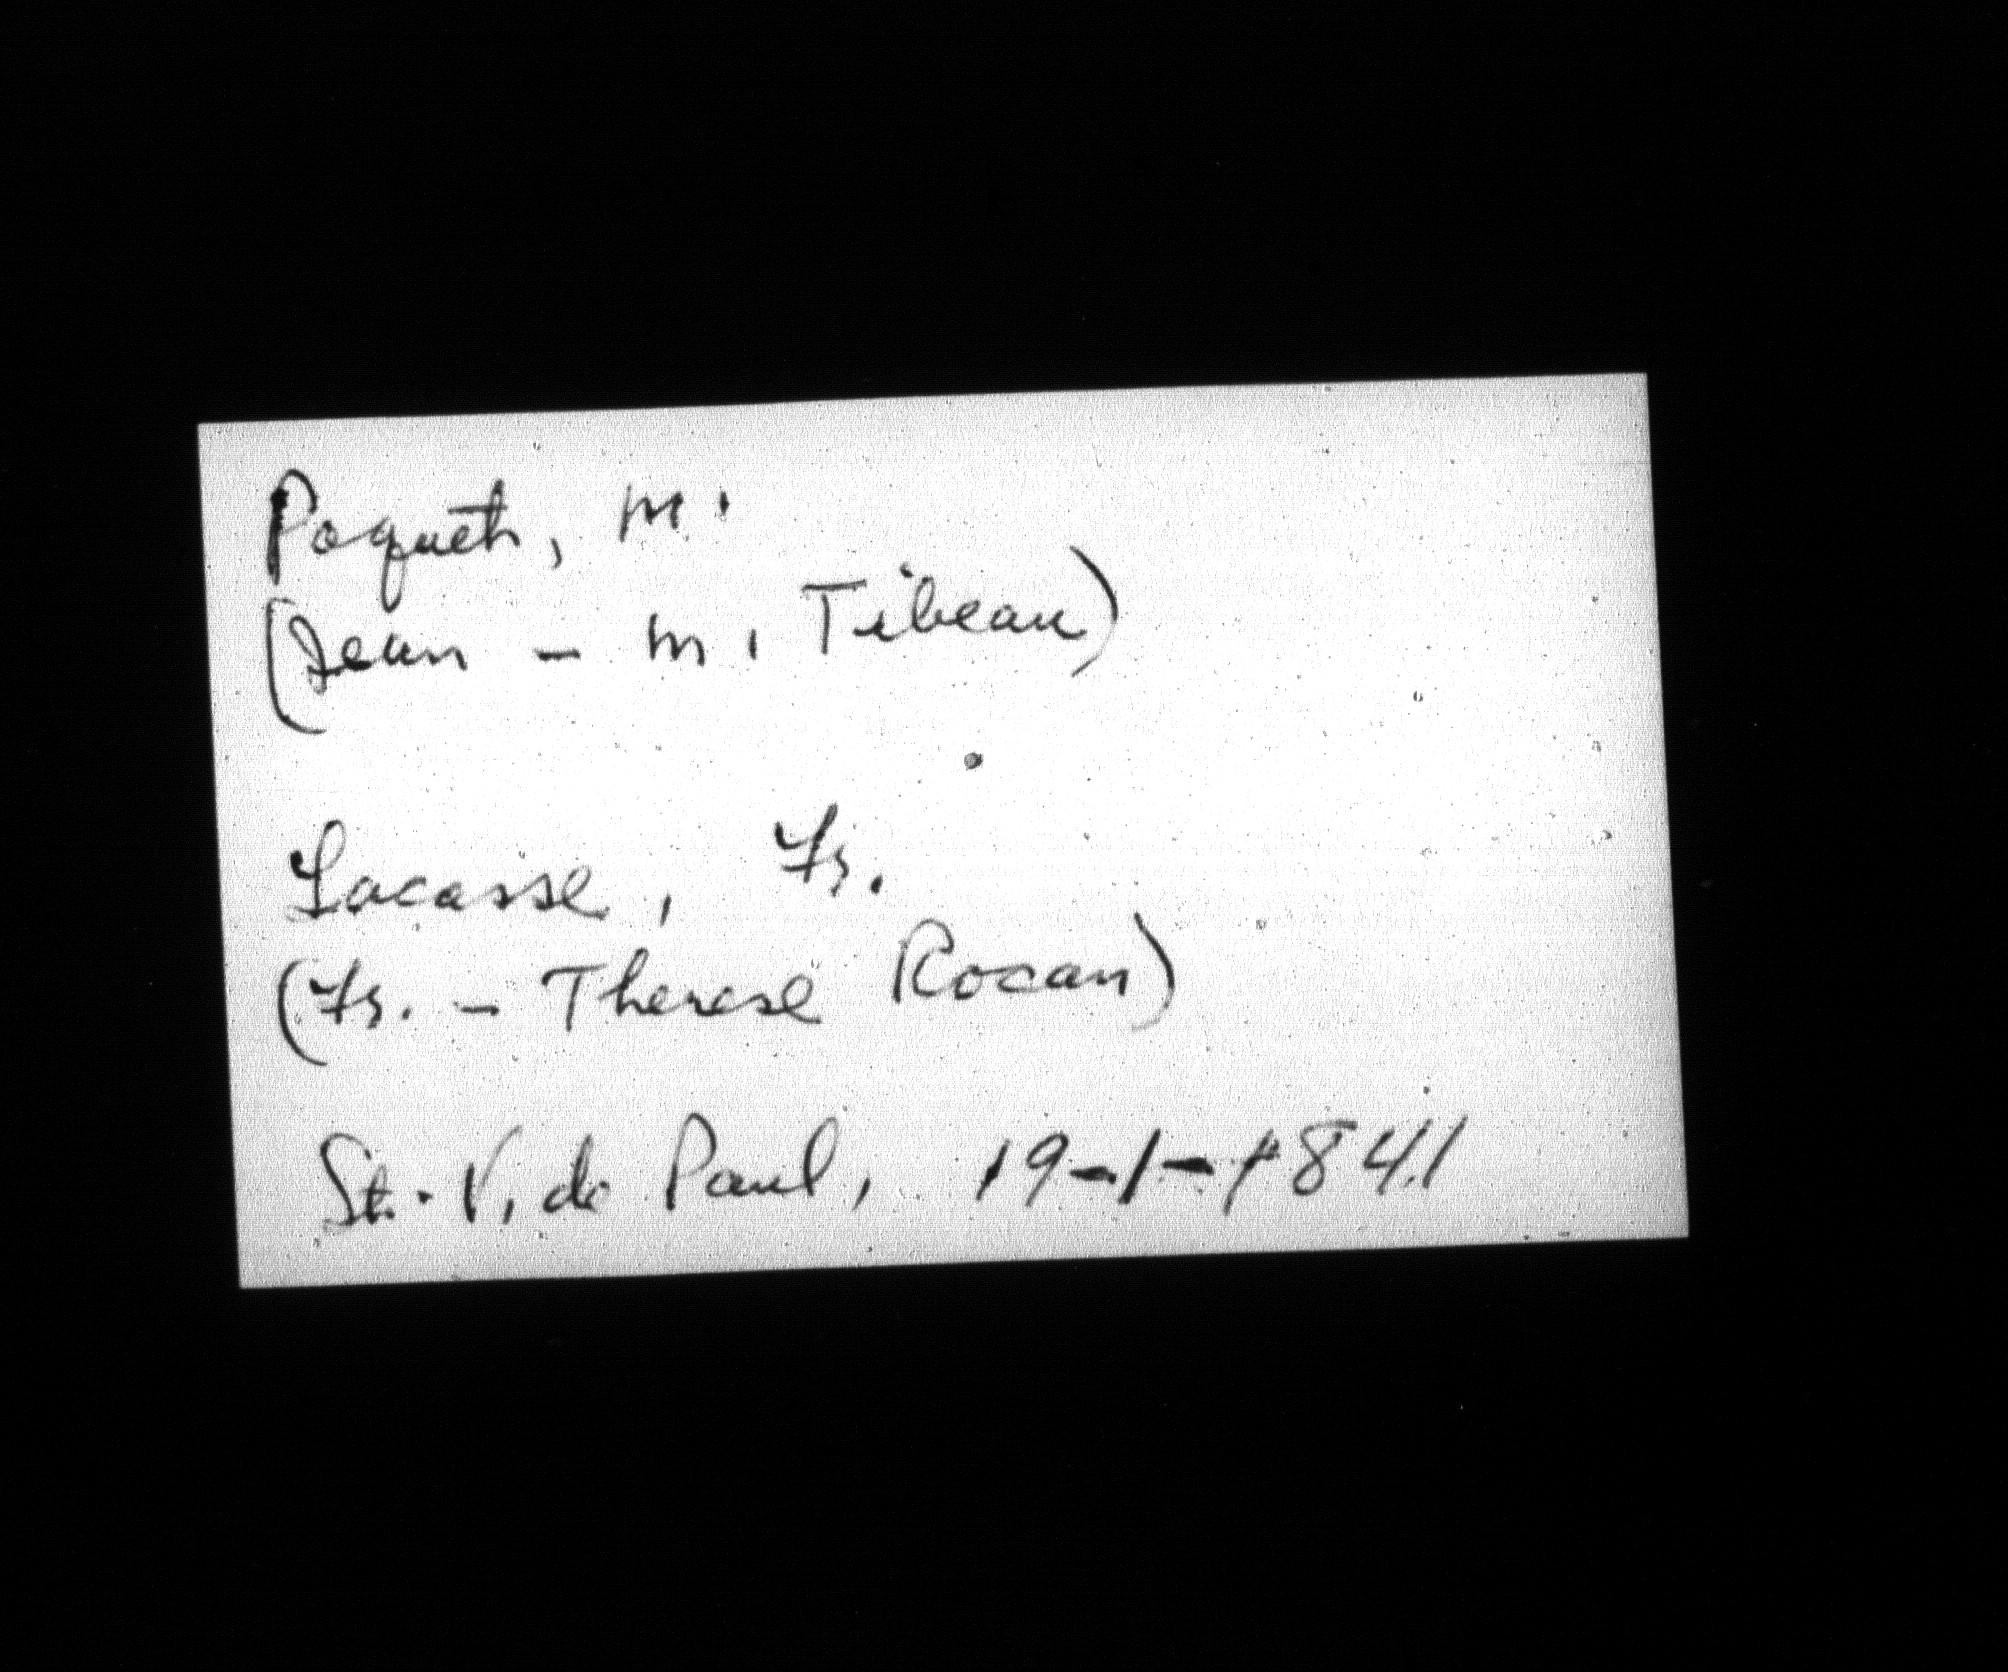 Paquett, M.
(Jean - M. Tibeau)
Lacasse, Fs.
(Fs. - Therese Rocan)
St. V. de Paul, 19-1-1841